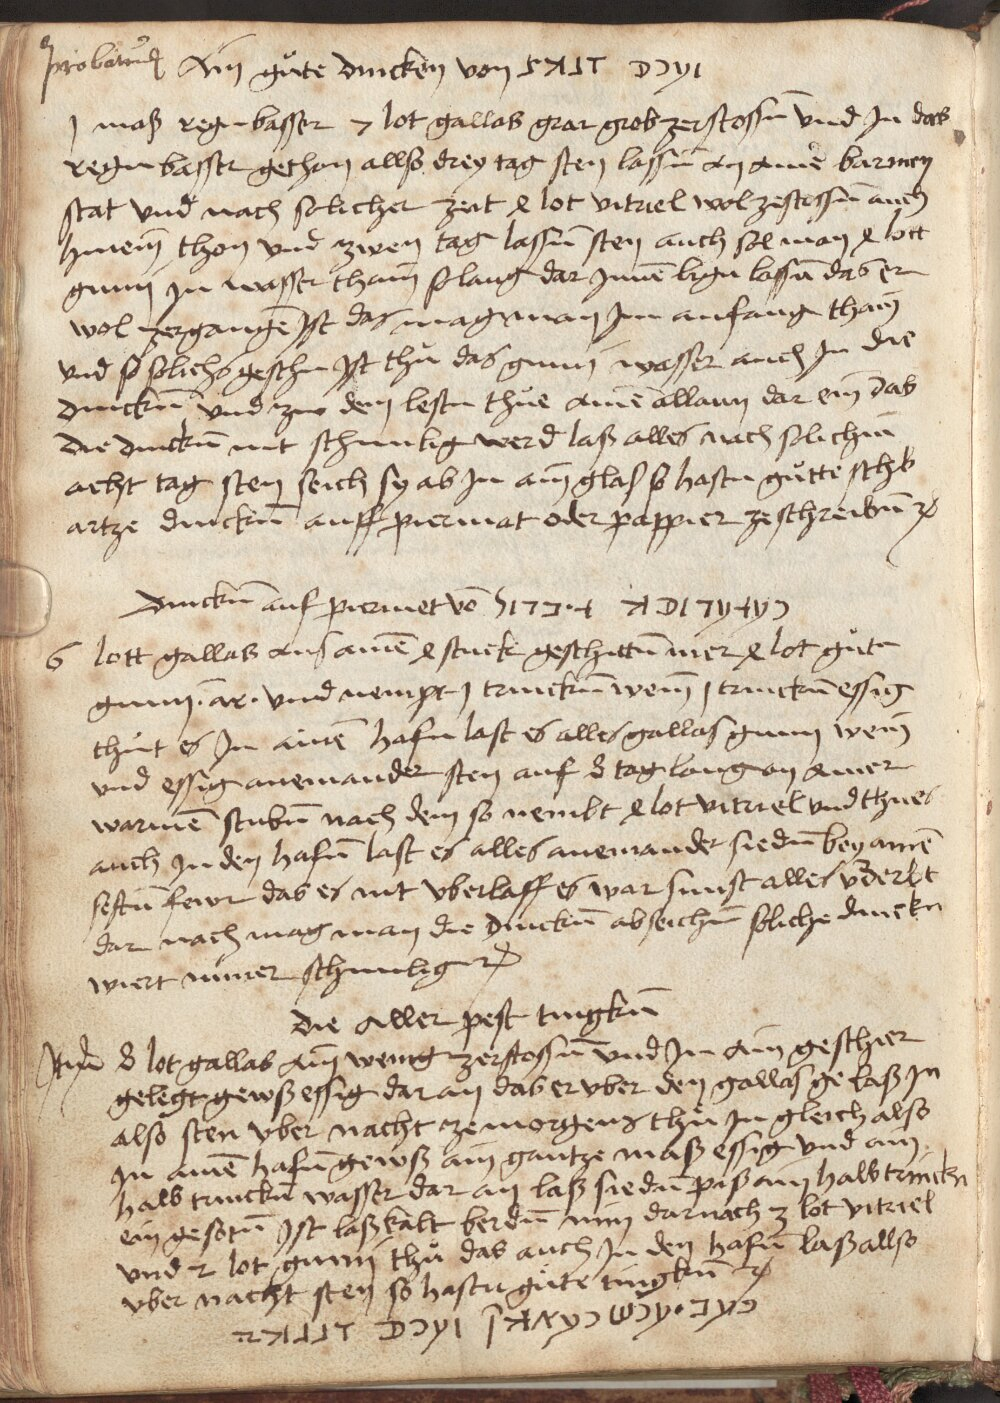 probatum Ain guͦte Dincken von
j maß regnbasser 7 lot gallas grar grob zerstossn̄ Und In das
regnbasser gethon allso drey tag sten lassn̄ an aine barmen
stat Und nach solicher zeit 4 lot vitriel wol zestossn̄ auch
hinein thon Und zwen tag lassn̄ sten auch sol man 4 lott
gumi in wasser thain so lang dar Innē lign lassn̄ das er
wol zergangē Ist das mag man Im anfang thain
Und so solichs geschn Ist thuͦ das gumi wasser auch In die
Dinckn̄ Und zw dem lestn thue ainē allaun dar ein Das
die dinckn̄ nit schimlig werd laß alles nach solichm̄
acht tag sten seich sy ab In ain glas so hastu guͦtte schb
artze dinckn̄ auff piermat oder pappier zeschreibn̄
Dinckn̄ auf piermet vō
6 lott gallas aus ainē 4 stuck geschittn̄ mer 4 lot guͦtn
gumi · ar · Und nempt j trinckn̄ wein j trinckn̄ essig
thuͦt es In ainē hafn last es alles gallas gumi wein
Und essig aneinander sten auf 8 tag lang an ainer
warmē stubn̄ nach dem so nembt 4 lot vitriel Und thues
auch In den hafn̄ last es alles aneinander siedn̄ bey ainē
senftn̄ fewr das es nit vberlaff es war sunst alles vderbt
dar nach mag man die Dinckn̄ abseichn̄ soliche dinckn
wiert nimer schimlig
Die aller pest tingkn̄
Item 8 lot gallas ain wenig zerstossn̄ Und In ain geschier
gelegt gewß essig dar an das er vber den gallas ge laß In
also sten vber nacht zemorgens thuͦ In gleich also
In ainē hafn̄ gewß ain gantze maß essig Und ain
halb trinckn̄ wasser dar an laß siedn̄ piß ain halb trinckn
ein gesotn̄ Ist laß kalt berdn̄ nim darnach 3 lot vitriel
Und 2 lot gumi thuͦ das auch In den hafn̄ laß allso
vber nacht sten so hastu guͦte tingkn̄